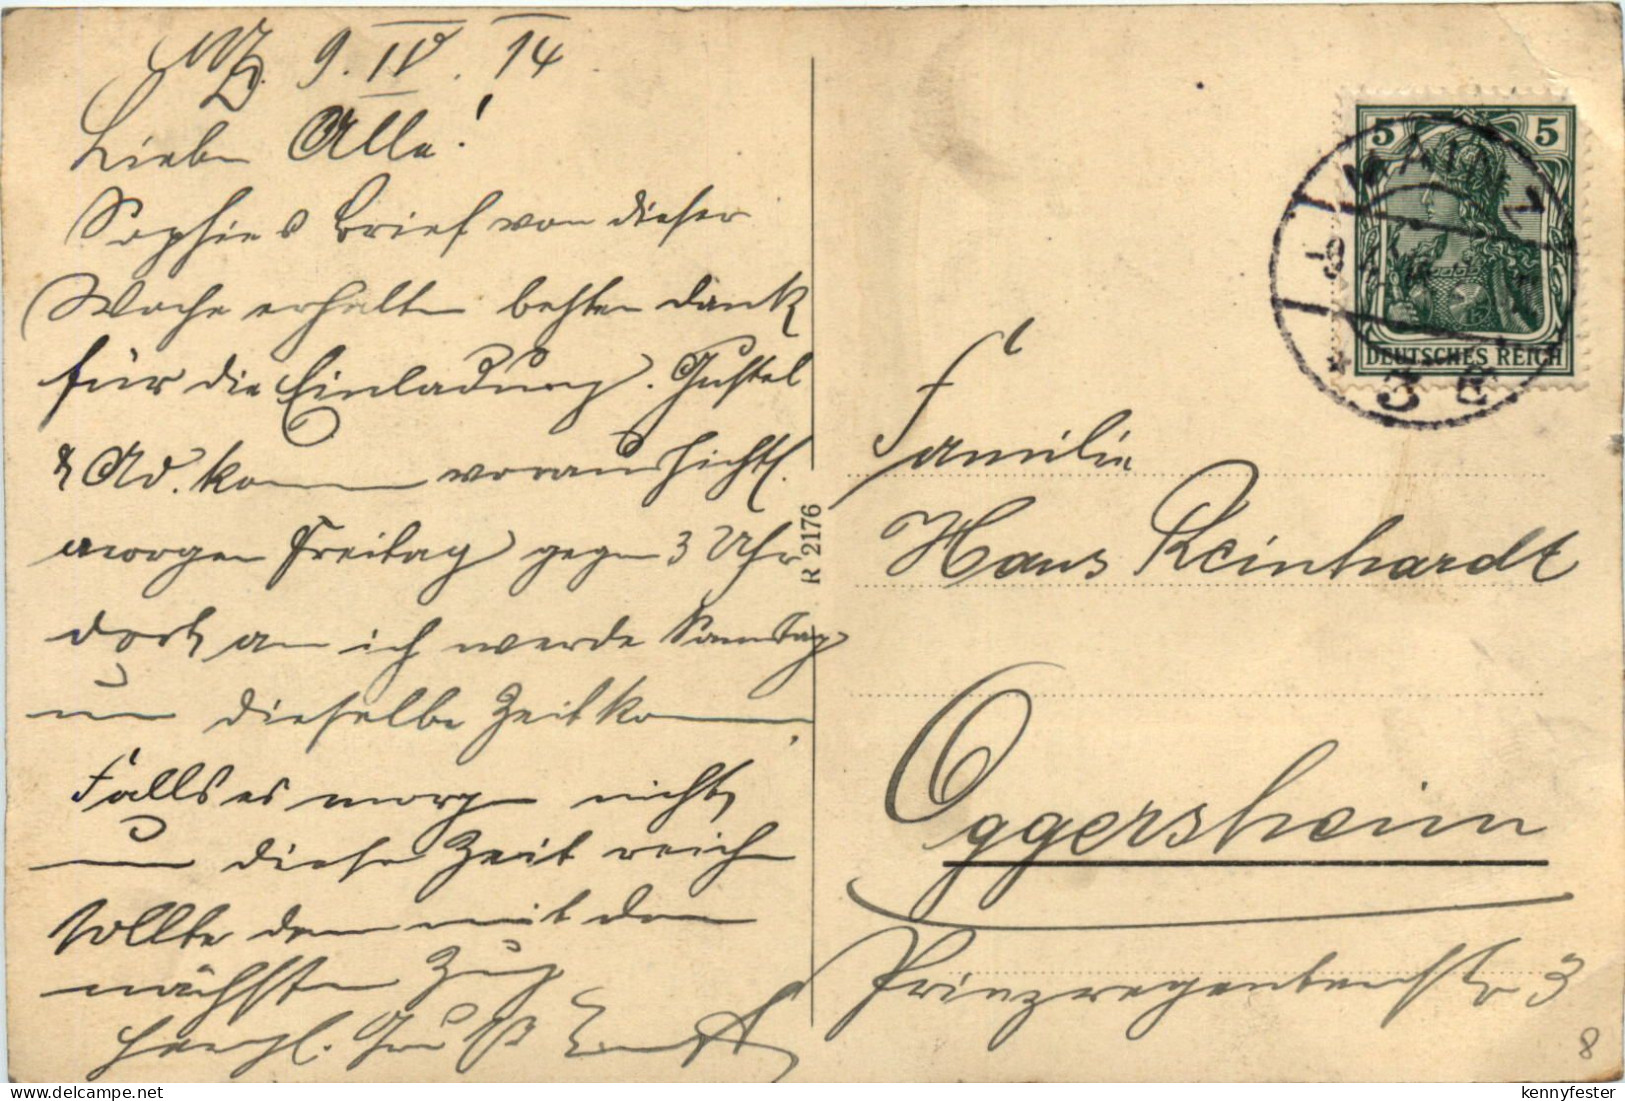 Mz. 9. IV. 14
Liebe Alle!
Sophies Brief von dieser
Woche erhalten besten Dank
für die Einladung. Gustel
& Ad. kommen voraussichtl.
morgen Freitag gegen 3 Uhr
dort an ich werde Samstag
um dieselbe Zeit kommen.
Falls es morgen nicht
um diese Zeit reichen
sollte dann mit dem
nächsten Zug
Herzl. Gruß Ernst
R 2176
5 5
MAINZ
DEUTSCHES REICH
Familie
Hans Reinhardt
Oggersheim
Prinzregentenstr 3
8
kennyfester